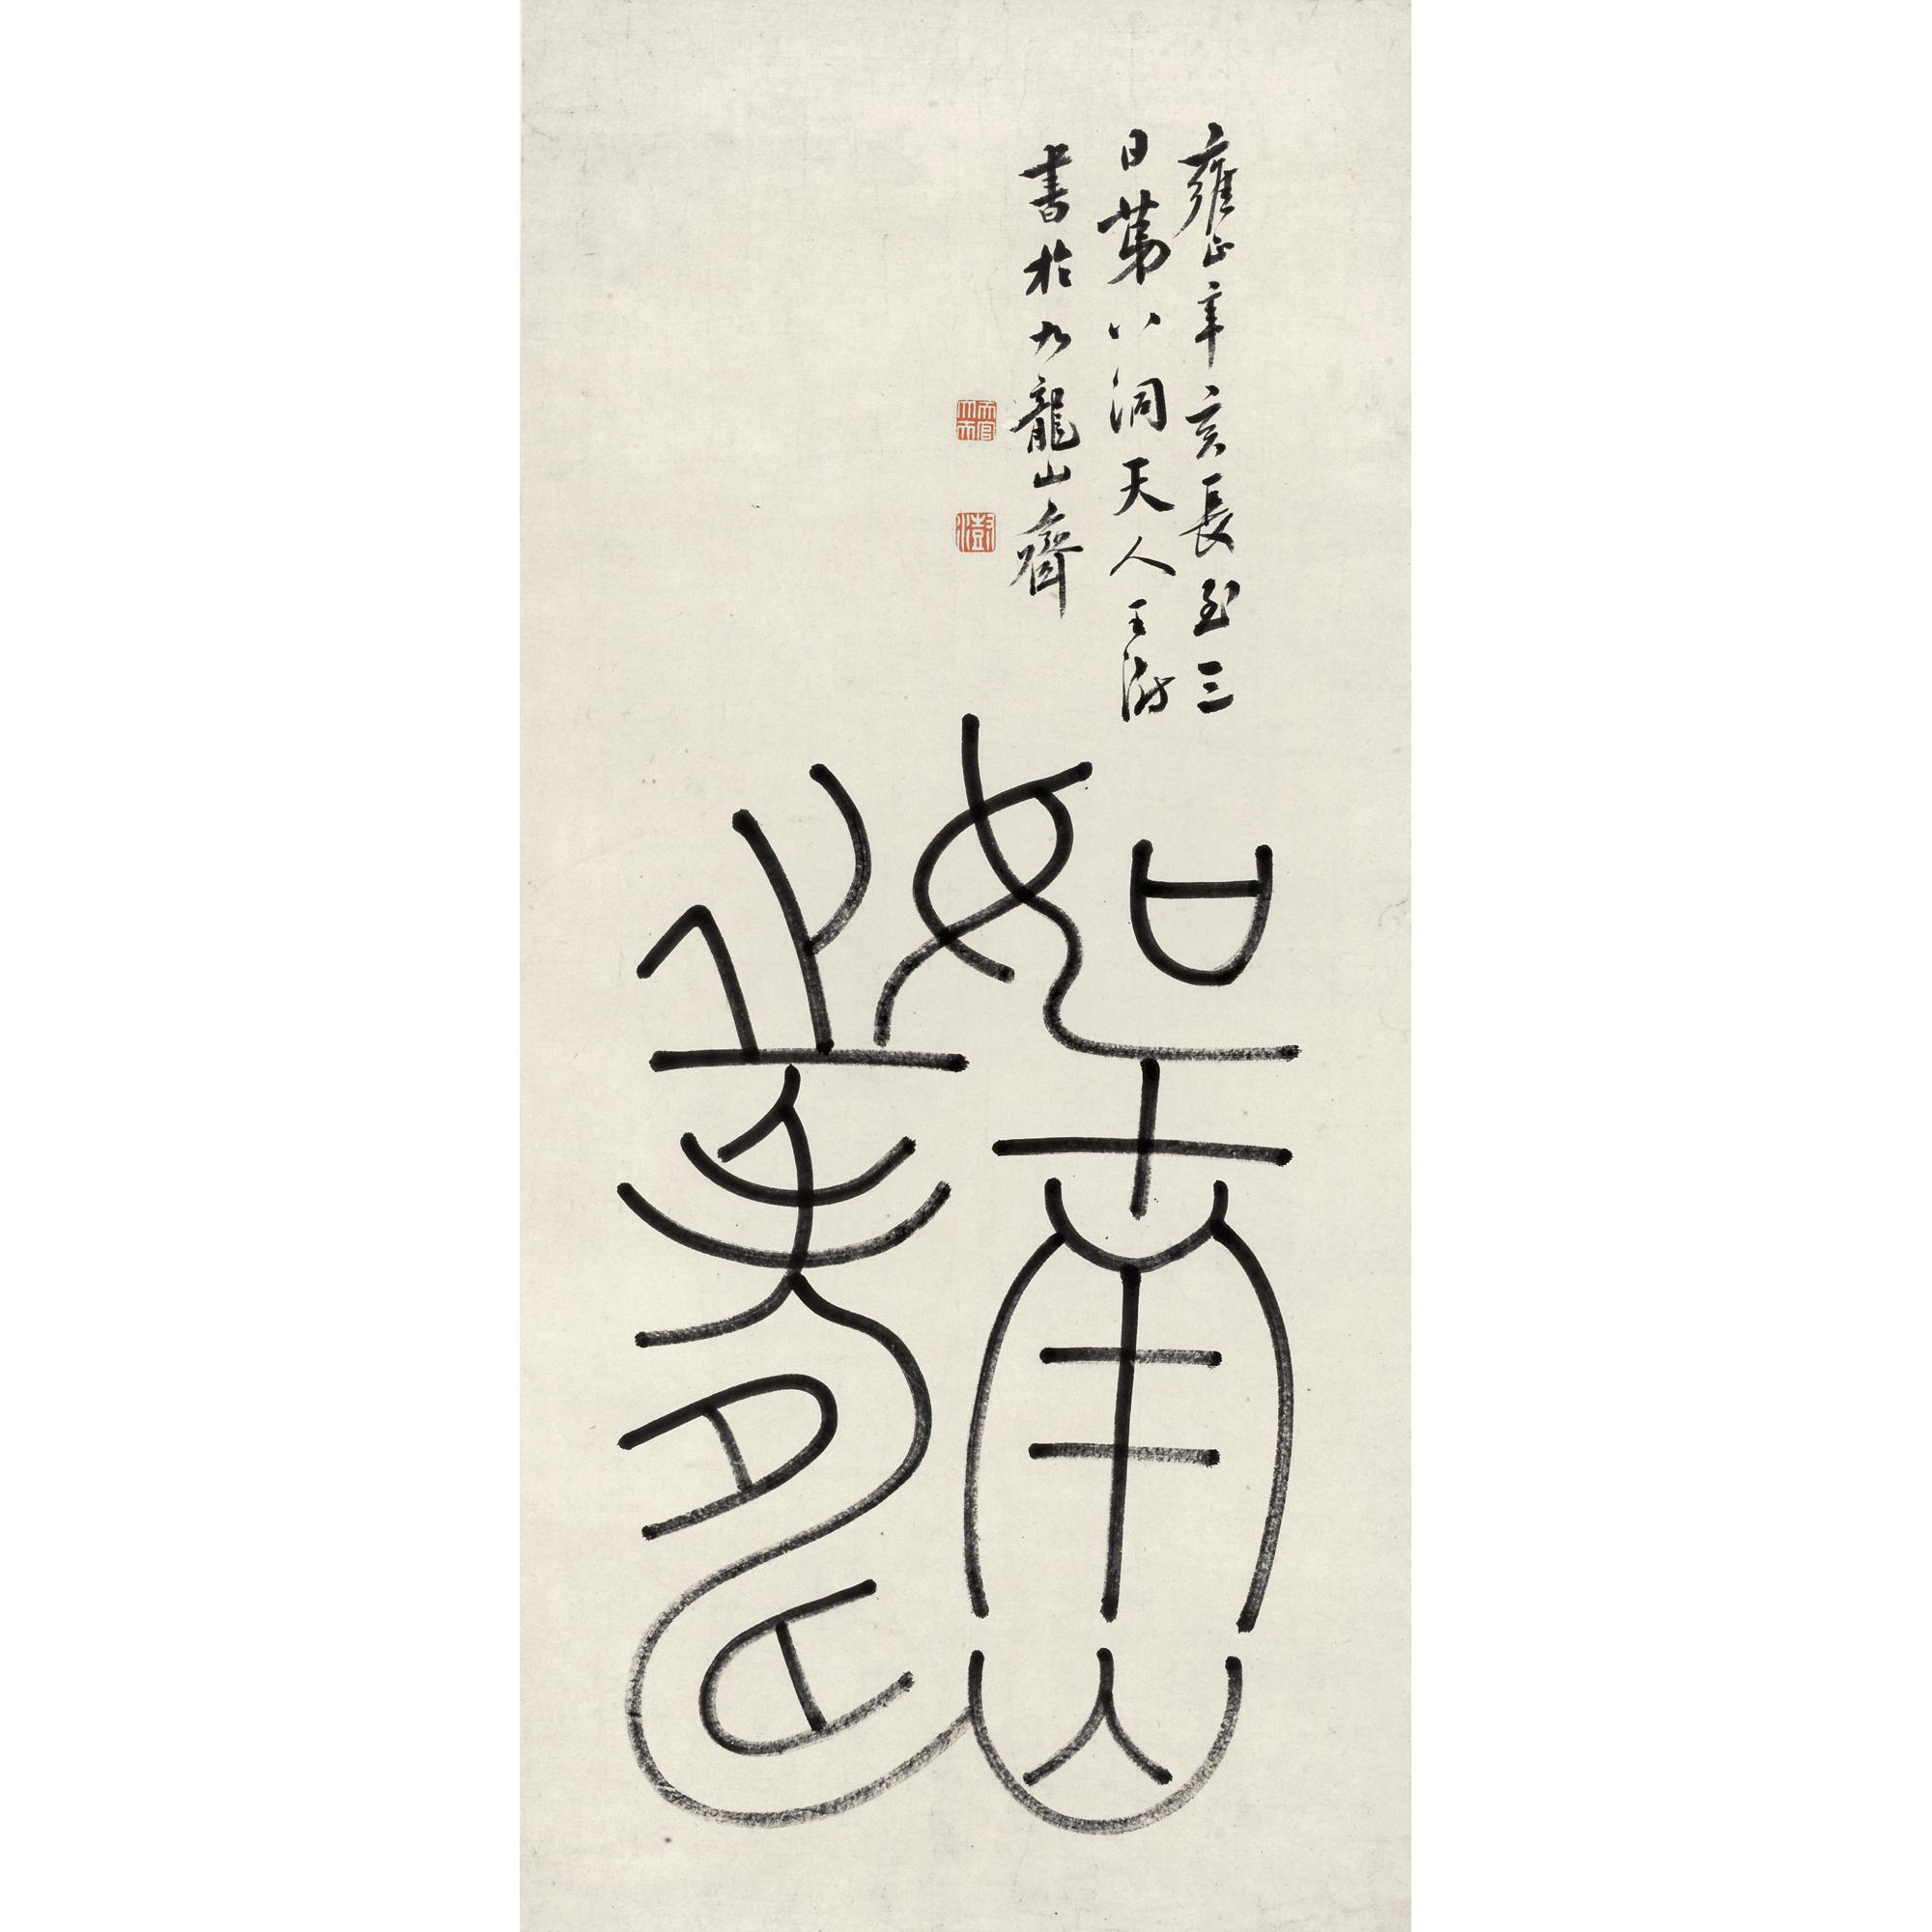 雍正辛亥長至三
日第八洞天人王澍
書於九龍山齋
澍
如南山
壽